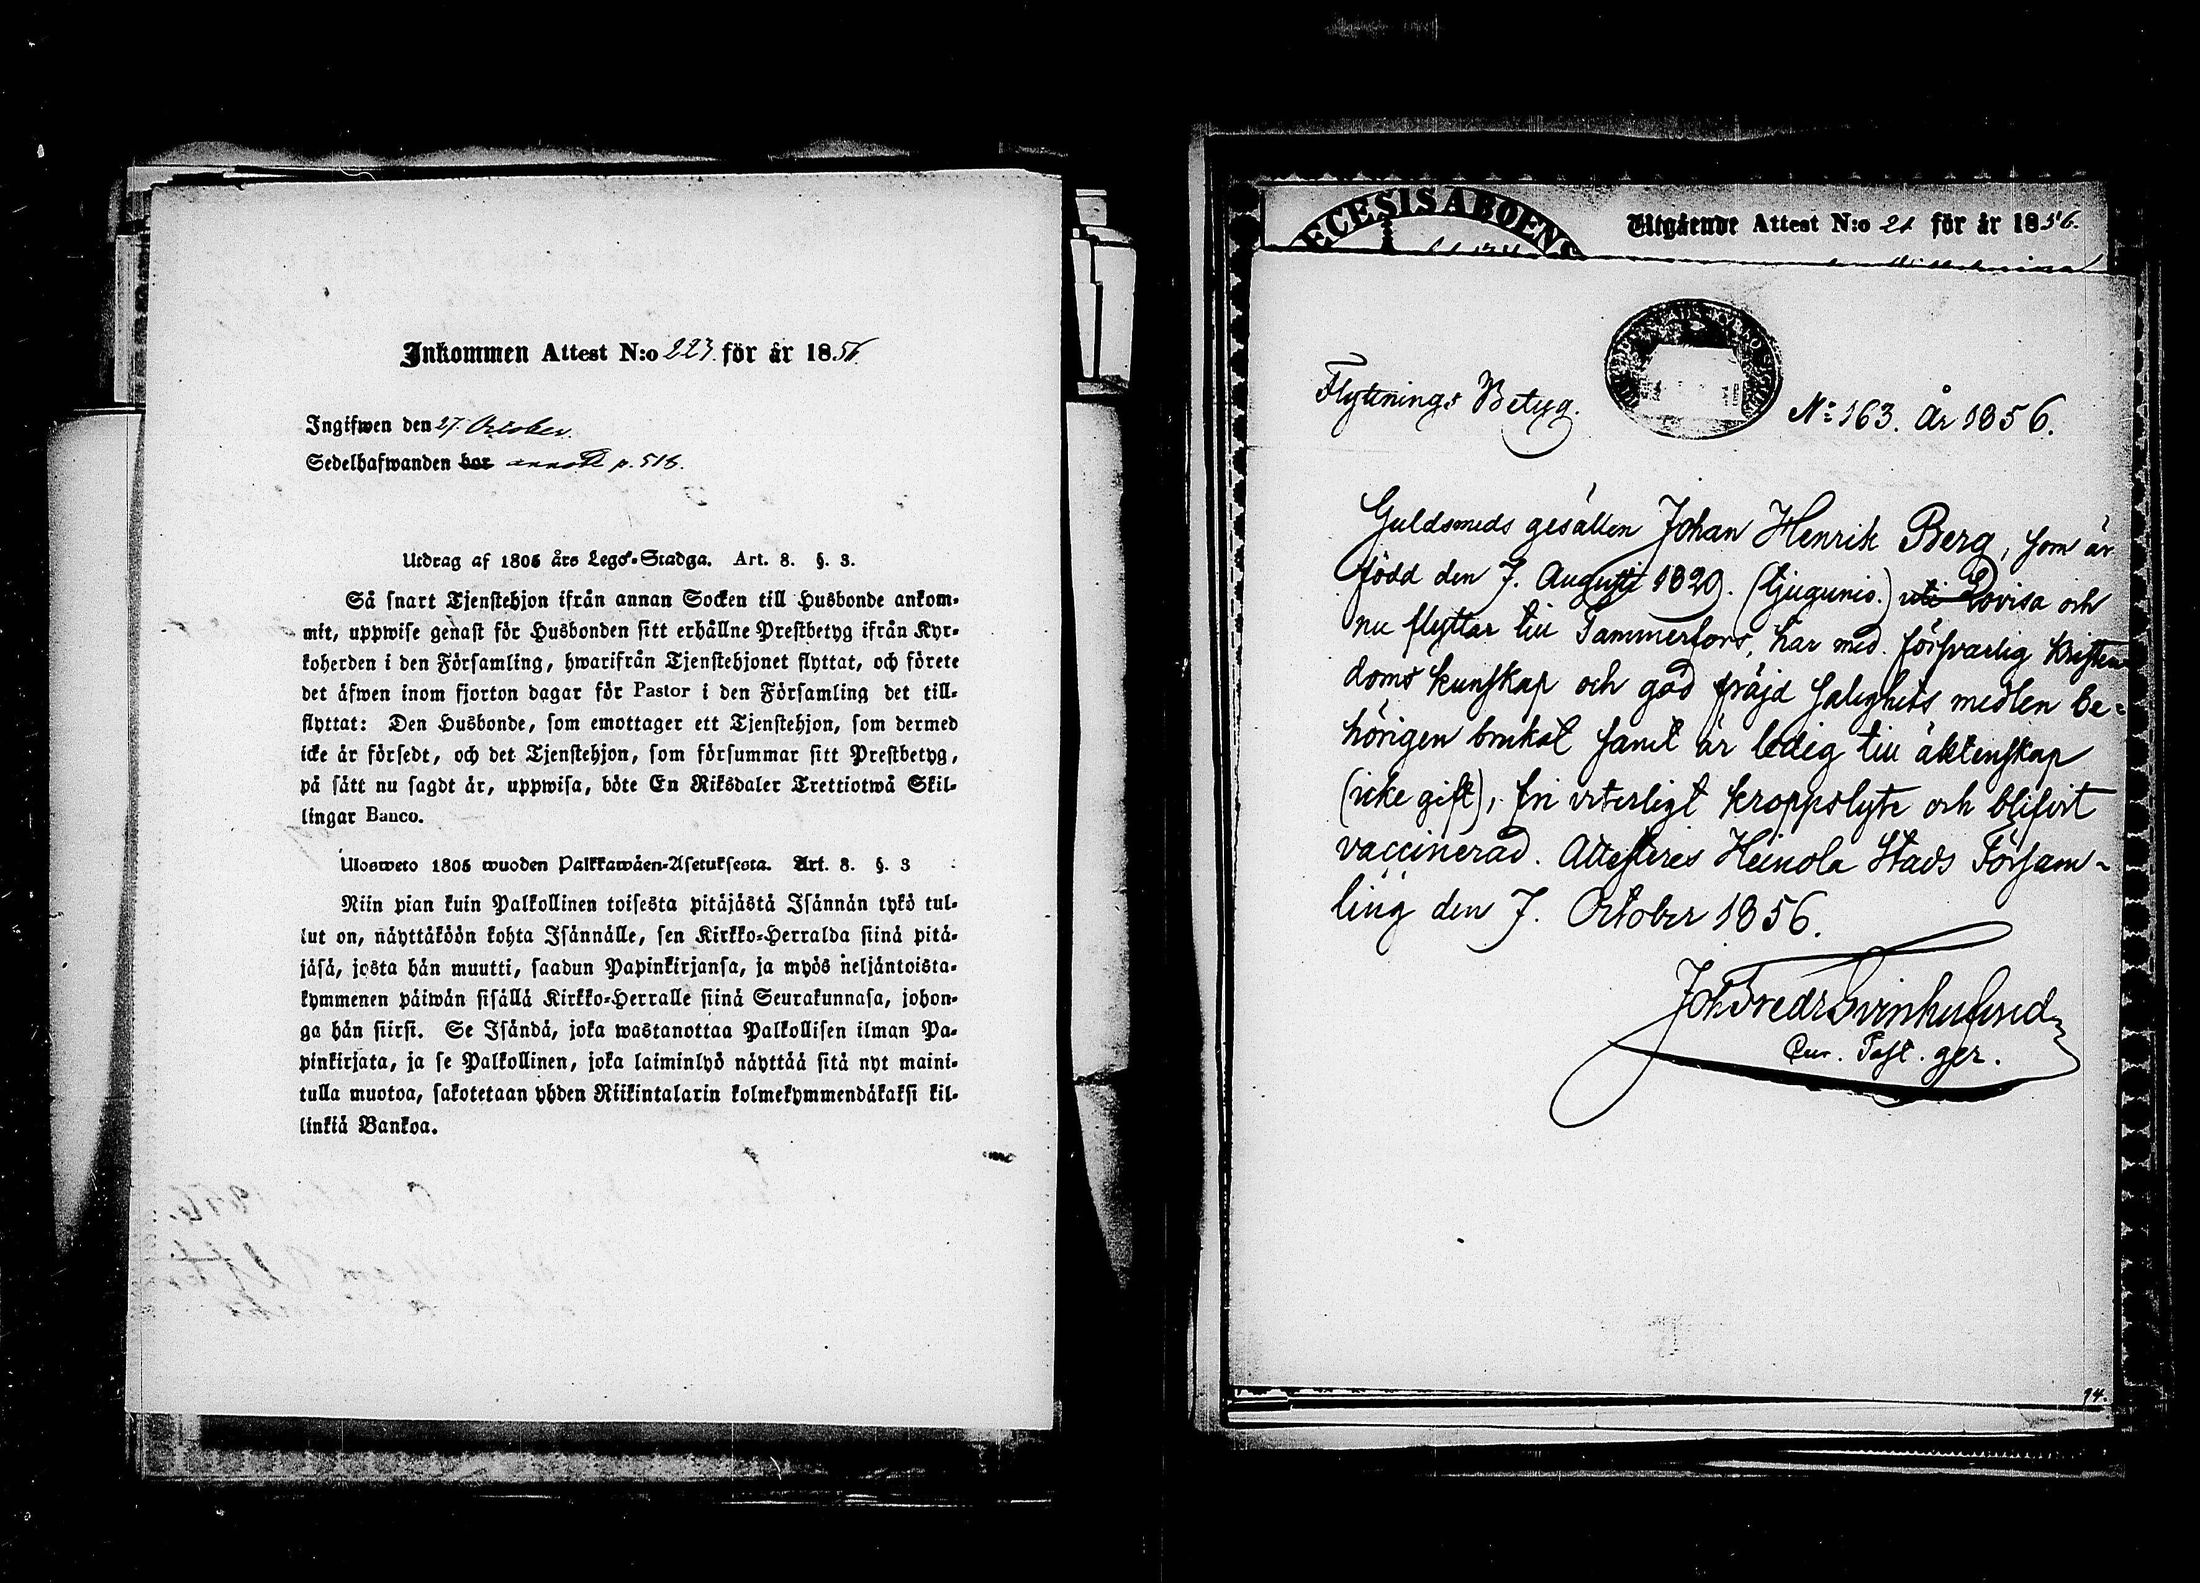 Inkommen Attest N:o 223. för år 1856.
Ingifwen den 27. October.
Sedelhafwanden bor p. 518.
Utdrag af 1805 års Lego-Stadga. Art. 8. §. 3.
Så snart Tjenstehjon ifrån annan Socken till Husbonde ankom-
mit, uppwise genast för Husbonden sitt erhållne Prestbetyg ifrån Kyr-
koherden i den Församling, hwarifrån Tjenstehjonet flyttat, och förete
det äfwen inom fjorton dagar för Pastor i den Församling det till-
flyttat: Den Husbonde, som emottager ett Tjenstehjon, som dermed
icke är försedt, och det Tjenstehjon, som försummar sitt Prestbetyg,
på sätt nu sagdt är, uppwisa, böte En Riksdaler Trettiotwå Skil-
lingar Banco.
Ulosweto 1805 wuoden Palkkawäen-Asetuksesta. Art. 8. §. 3
Niin pian kuin Palkollinen toisesta pitäjästä Isännän tykö tul-
lut on, näyttäköön kohta Isännälle, sen Kirkko-Herralda siinä pitä-
jäsä, josta hän muutti, saadun Papinkirjansa, ja myös neljäntoista-
kymmenen päiwän sisällä Kirkko-Herralle siinä Seurakunnasa, johon-
ga hän siirsi. Se Isändä, joka wastanottaa Palkollisen ilman Pa-
pinkirjata, ja se Palkollinen, joka laiminlyö näyttää sitä nyt maini-
tulla muotoa, sakotetaan yhden Riikintalarin kolmekymmendäkaksi kil-
linkiä Bankoa.
ECESIS ABOENS
Utgående Attest N:o 21 för år 1856.
Flyttnings Betyg.
No 163. År 1856.
Guldsmeds gesällen Johan Henrik Berg, som är
född den 7. Augusti 1829. (tjugunio.) uti Lovisa och
nu flyttar till Tammerfors, har med försvarlig Kristen
doms kunskap och god fräjd salighets medlen be-
hörigen brukat samt är ledig till äktenskap
(icke gift), fri vterligt kroppslyte och blifvit
vaccinerad. Attesteres Heinola Stads Försam-
ling den 7. October 1856.
Joh Fredr Svinhufvud
Cur. Past. ger.
94.